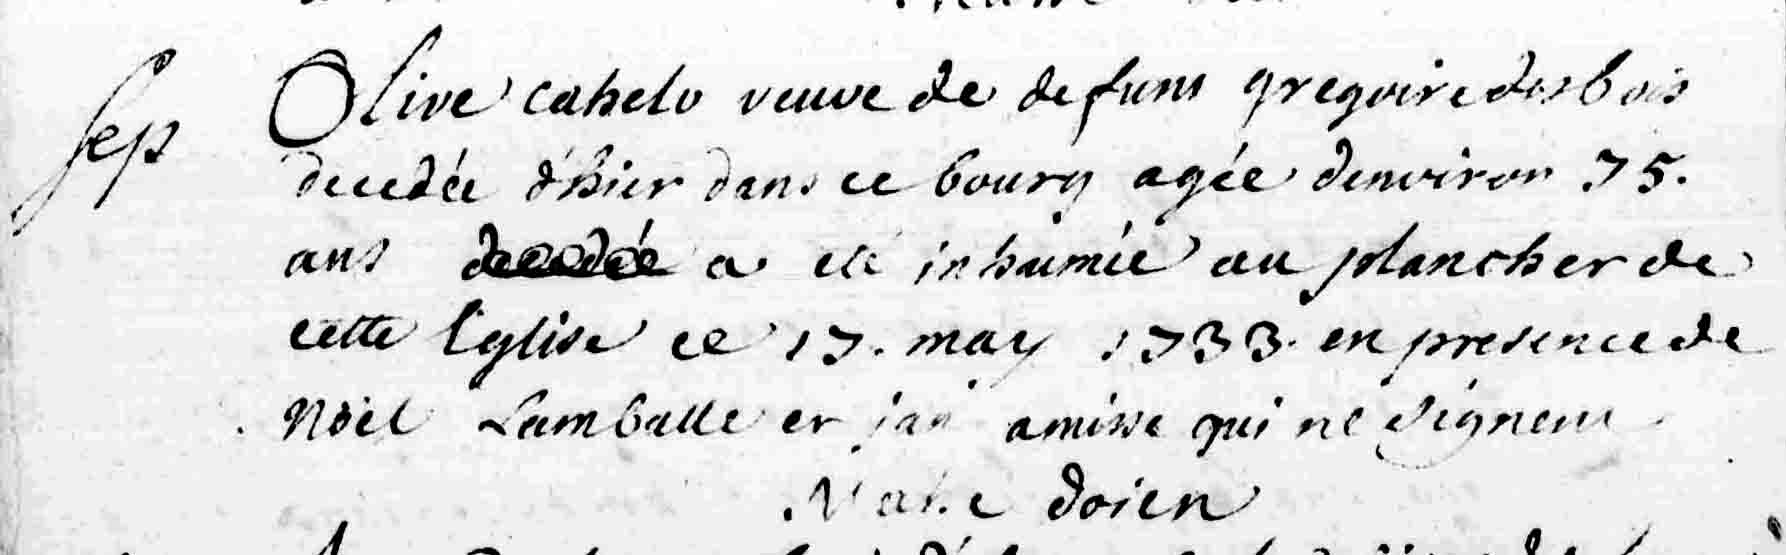 sep Olive cahelo veuve de defunt gregoire desbois
decedée d'hier dans ce bourg agée denviron 75.
ans decedée a eté inhumée au plancher de
cette Eglise ce 17. may 1733. en presence de
Nöel Lamballe et jan amisse qui ne signent
doien